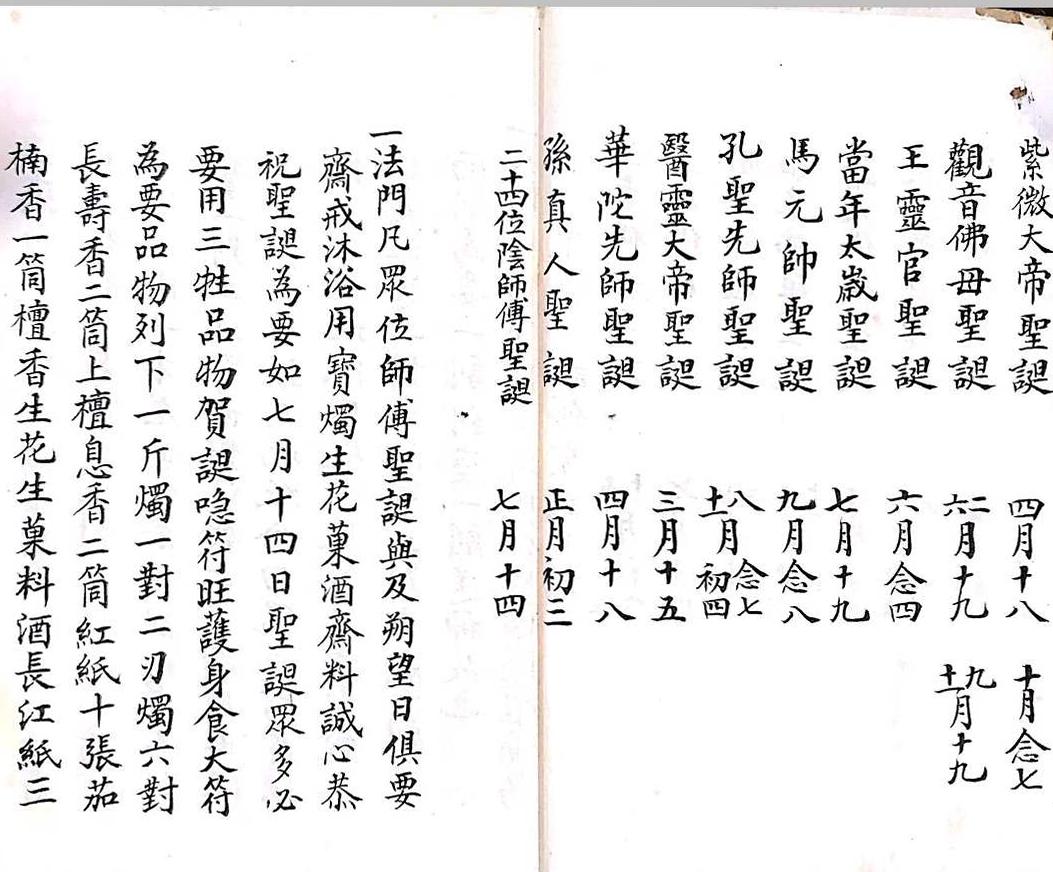 紫微大帝聖誕 四月十八 十月念七
觀音佛母聖誕 二六月十九 九十一月十九
王靈官聖誕 六月念四
當年太歲聖誕 七月十九
馬元帥聖誕 九月念八
孔聖先師聖誕 八十一月念七初四
醫靈大帝聖誕 三月十五
華陀先師聖誕 四月十八
孫真人聖誕 正月初三
二十四位陰師傅聖誕 七月十四
一法門凡眾位師傅聖誕與及朔望日俱要
齋戒沐浴用寶燭生花菓酒齋料誠心恭
祝聖誕為要如七月十四日聖誕眾多必
要用三牲品物賀誕唸符旺護身食大符
為要品物列下一斤燭一對二刃燭六對
長壽香二筒上檀息香二筒紅紙十張茄
楠香一筒檀香生花生菓料酒長江紙三